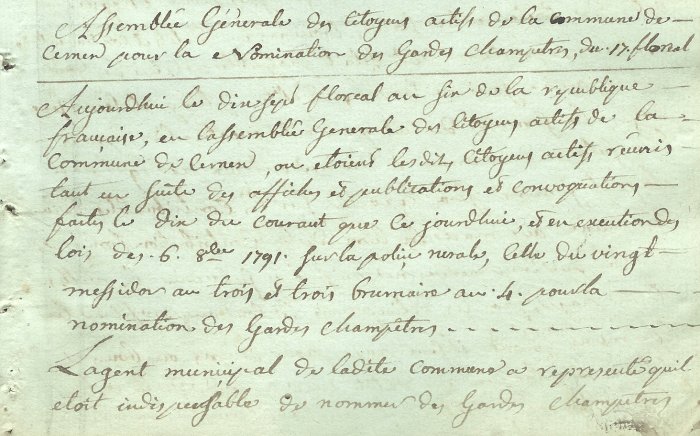 Assemblée Générale des Citoyens actifs de la commune de
Cernen pour la Nomination des Gardes Champetres, du 17. floreal
Aujourdhui le dix sept floreal an six de la republique
francaise, en lassemblée Generale des Citoyens actifs de la
Commune de Cernen, ou etoient lesdits Citoyens actifs réunis
tant en suite des affiches et publications et convoquations
faites le dix du courant que ce jourdhui, et en exécution des
lois des .6. 8bre 1791. sur la police rurale, Celle du vingt
messidor an trois et trois brumaire an .4. pour la
nomination des Gardes Champêtres
Lagent municipal de ladite Commune a representé quil
etoit indispensable de nommer des Gardes Champetres